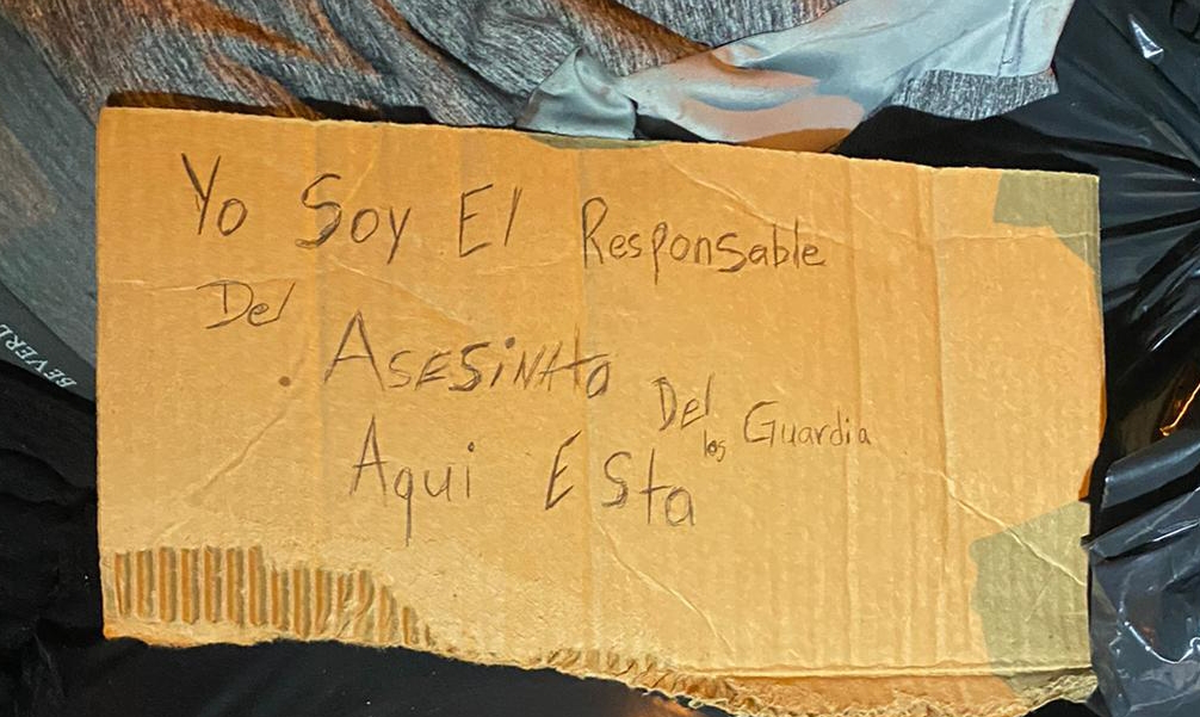 Yo Soy El Responsable
Del
ASESiNAto Del los Guardia
Aqui Esta
BEVERL